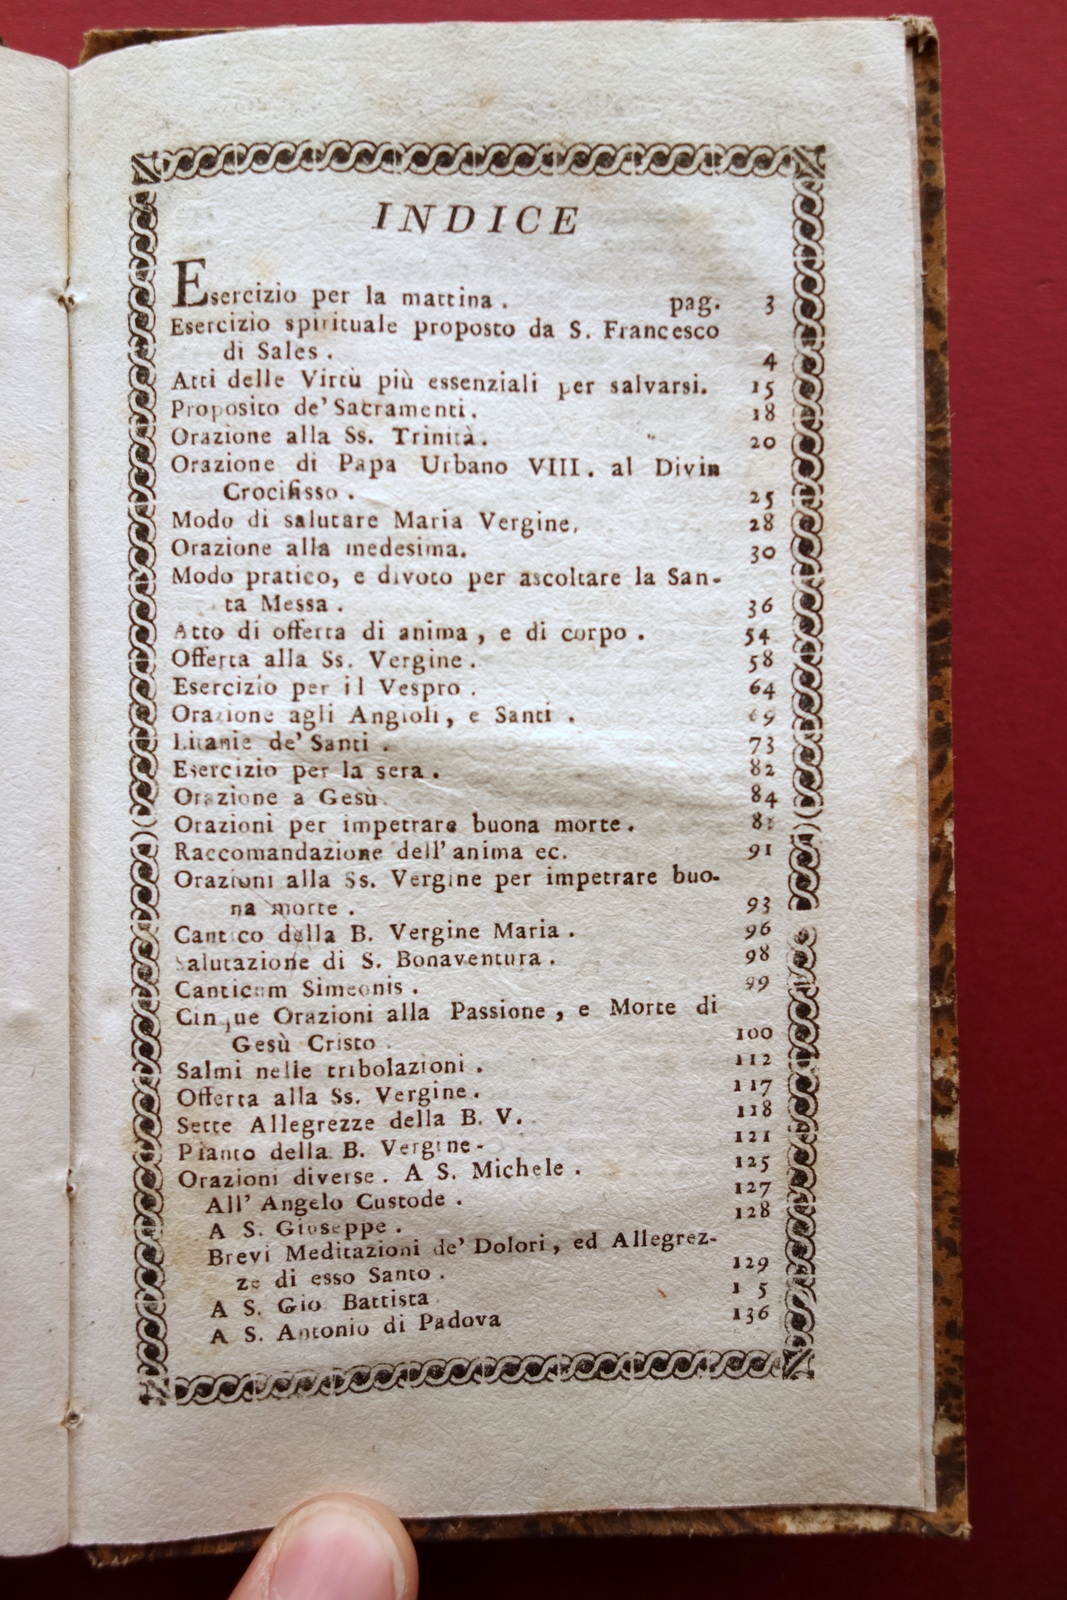 INDICE
Esercizio per la mattina . pag. 3
Esercizio spirituale proposto da S. Francesco
di Sales . 4
Atti delle Virtù più essenziali per salvarsi. 15
Proposito de' Sacramenti. 18
Orazione alla Ss. Trinità. 20
Orazione di Papa Urbano VIII. al Divin
Crocifisso . 25
Modo di salutare Maria Vergine. 28
Orazione alla medesima. 30
Modo pratico, e divoto per ascoltare la San-
ta Messa . 36
Atto di offerta di anima , e di corpo . 54
Offerta alla Ss. Vergine . 58
Esercizio per il Vespro . 64
Orazione agli Angioli, e Santi . 69
Litanie de' Santi . 73
Esercizio per la sera . 82
Orazione a Gesù 84
Orazioni per impetrare buona morte .
Raccomandazione dell' anima ec. 91
Orazioni alla Ss. Vergine per impetrare buo-
na morte . 93
Cantico della B. Vergine Maria . 96
Salutazione di S. Bonaventura . 98
Canticum Simeonis . 99
Cinque Orazioni alla Passione , e Morte di
Gesù Cristo . 100
Salmi nelle tribolazioni . 112
Offerta alla Ss. Vergine . 117
Sette Allegrezze della B. V. 118
Pianto della B. Vergine- 121
Orazioni diverse . A S. Michele . 125
All' Angelo Custode . 127
A S. Giuseppe . 128
Brevi Meditazioni de' Dolori , ed Allegrez-
ze di esso Santo . 129
A S. Gio Battista 1 5
A S. Antonio di Padova 136